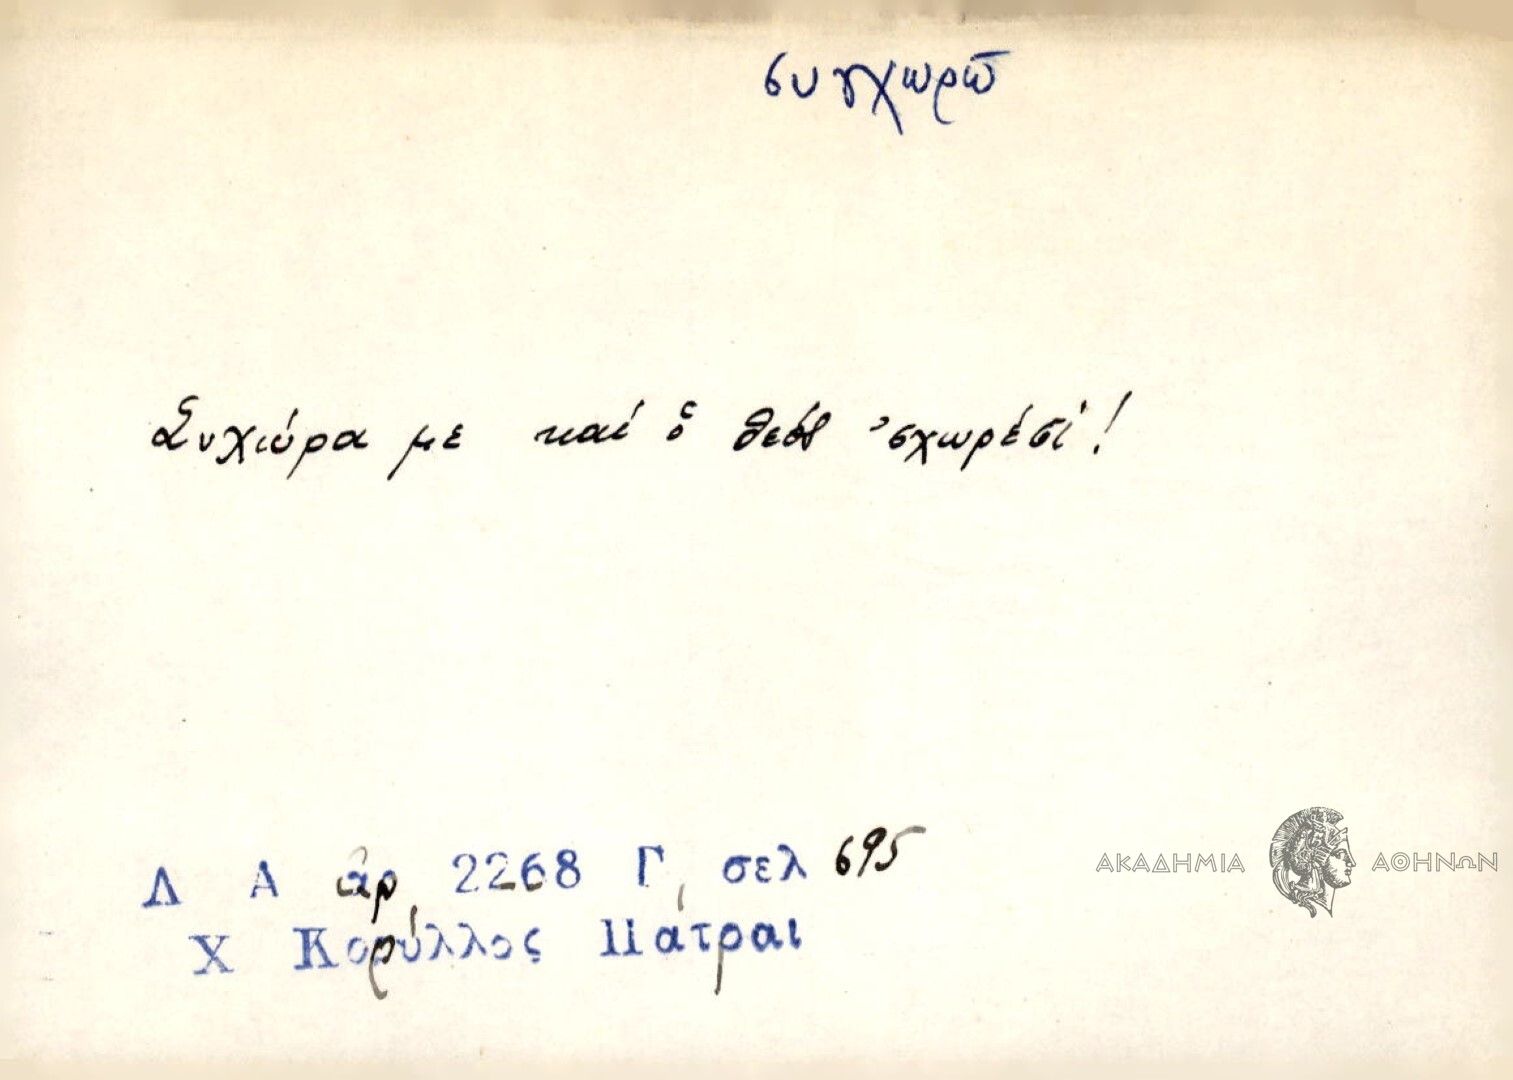 συγχωρῶ
Συχώρα με καί ὁ θεός 'σχωρέσι!
Λ Α ἀρ 2268 Γ, σελ 695
Χ Κορύλλος Πάτραι
ΑΚΑΔΗΜΙΑ ΑΘΗΝΩΝ